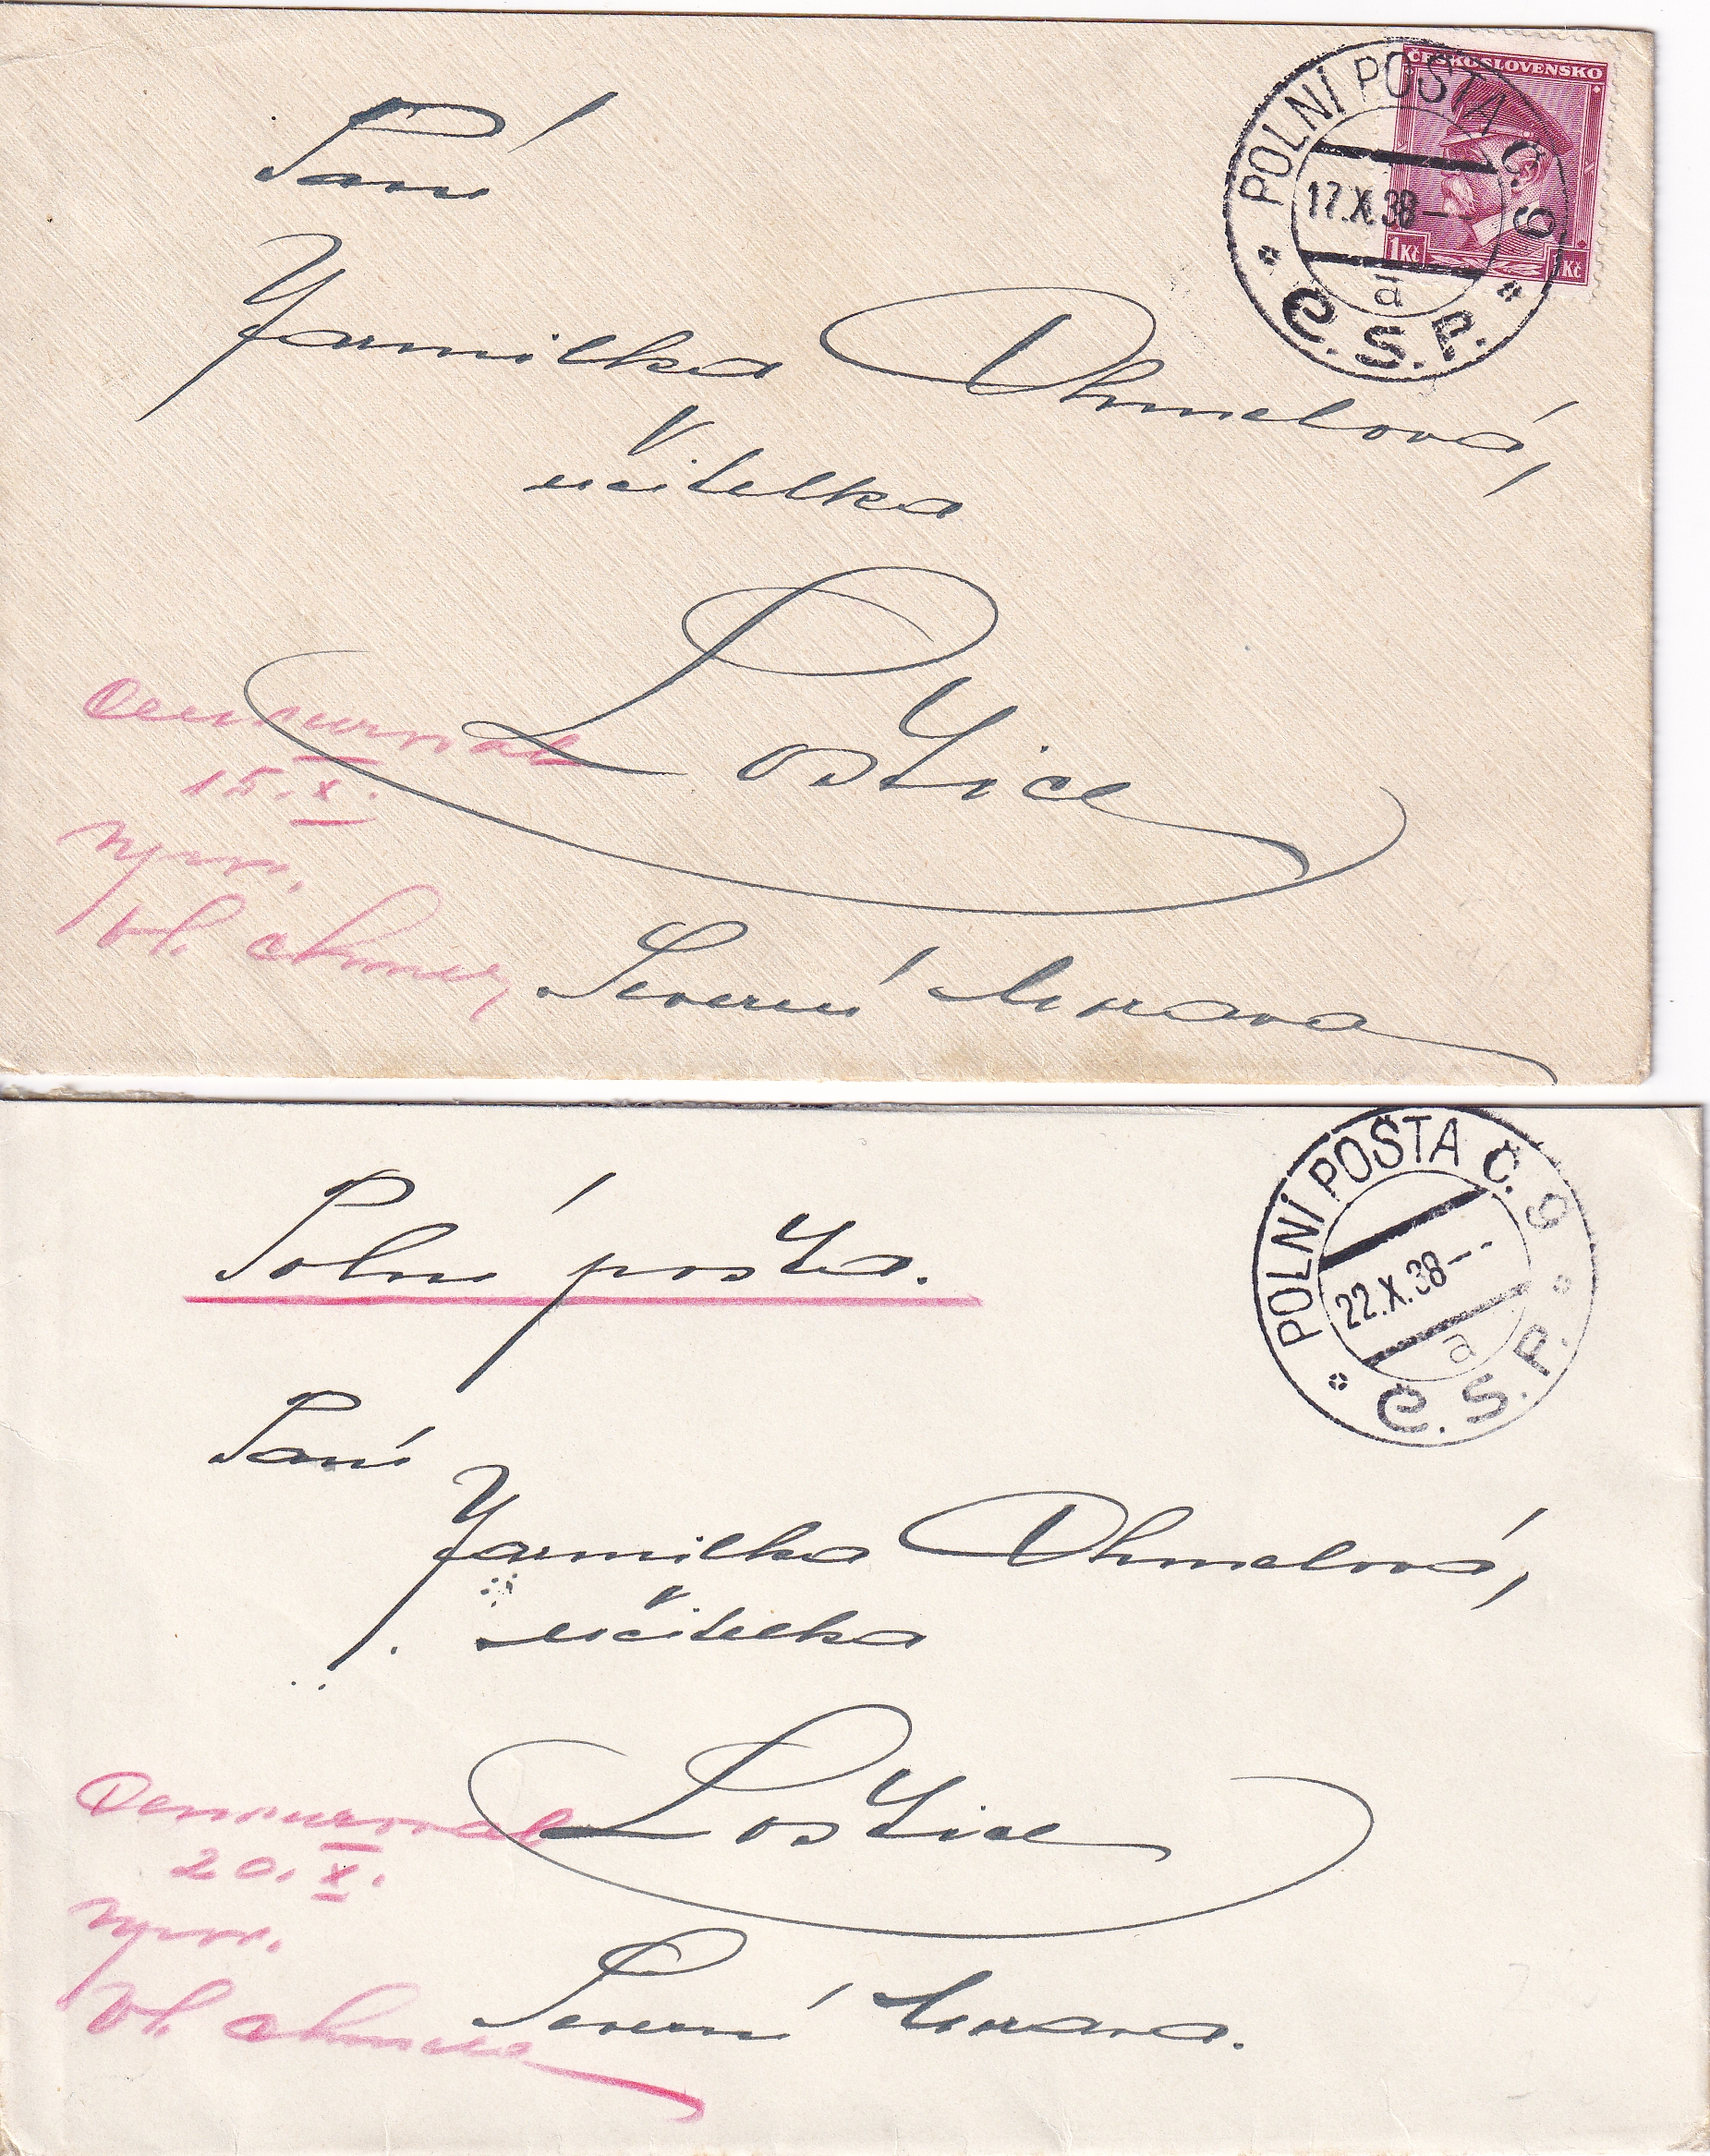 Paní
Jarmilka Chmelová,
učitelka
Loštice
Severní Morava
Censuroval
15.X.
npor.
Vl. Chmela
ČESKOSLOVENSKO
1Kč 1Kč
POLNÍ POŠTA Č. 9
17.X.38
a
Č.S.P.
Polní pošta.
Paní
Jarmilka Chmelová,
učitelka
Loštice
Severní Morava.
Censuroval
20.X.
npor.
Vl. Chmela
POLNÍ POŠTA Č. 9
22.X.38
a
Č.S.P.